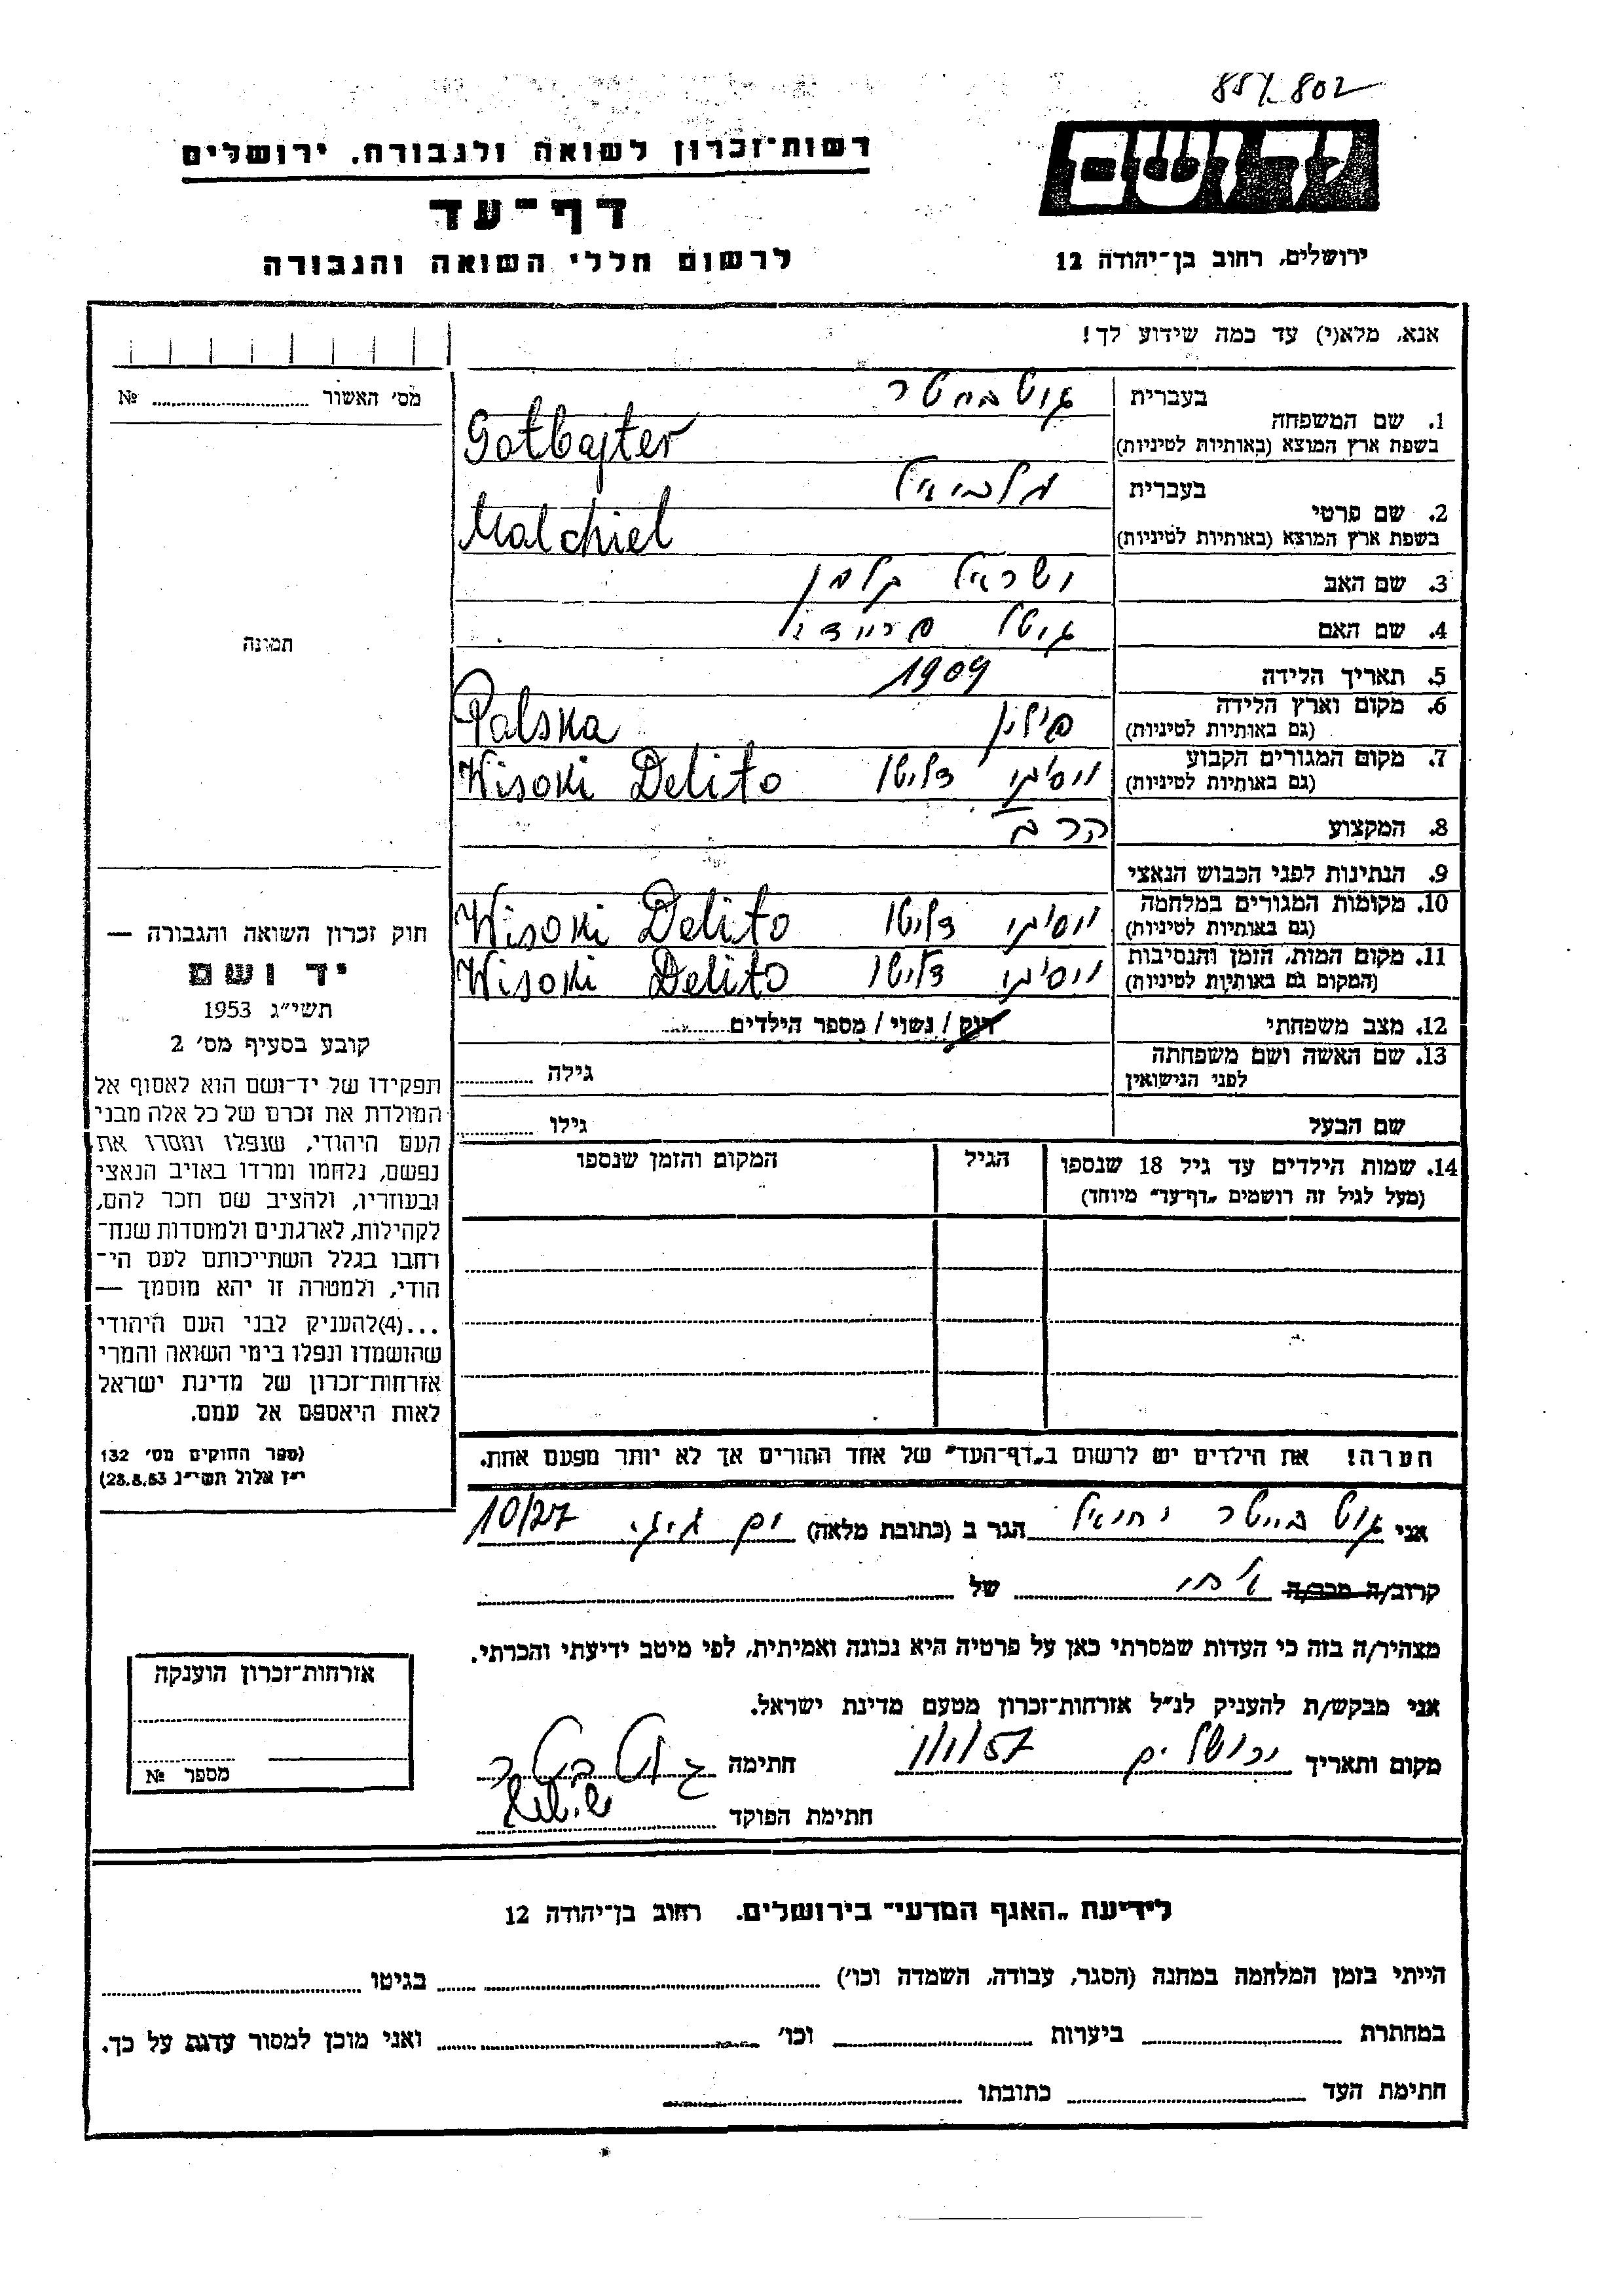 88/802
רשות־זכרון לשואה ולגבורה, ירושלים
ידושם
דף־עד
לרשום חללי השואה והגבורה
ירושלים, רחוב בן־יהודה 12
אנא, מלא(י) עד כמה שידוע לך!
מס׳ האשור № 
1. שם המשפחה
בעברית
בשפת ארץ המוצא (באותיות לטיניות)
Gotbajter
2. שם פרטי
בעברית מלכיאל
בשפת ארץ המוצא (באותיות לטיניות)
Malchiel
3. שם האב ישראל קלמן
4. שם האם גיטל פריידל
5. תאריך הלידה 1909
6. מקום וארץ הלידה פולין Polska
(גם באותיות לטיניות)
7. מקום המגורים הקבוע ויסוקי דליטו Wisoki Delito
(גם באותיות לטיניות)
8. המקצוע
9. הנתינות לפני הכבוש הנאצי
10. מקומות המגורים במלחמה ויסוקי דליטו Wisoki Delito
(גם באותיות לטיניות)
11. מקום המות, הזמן והנסיבות ויסוקי דליטו Wisoki Delito
(המקום גם באותיות לטיניות)
12. מצב משפחתי רוק / נשוי / מספר הילדים
13. שם האשה ושם משפחתה גילה
לפני הנישואין
שם הבעל גילו
14. שמות הילדים עד גיל 18 שנספו הגיל המקום והזמן שנספו
(מעל לגיל זה רושמים „דף־עד״ מיוחד)
הערה! את הילדים יש לרשום ב„דף־העד״ של אחד ההורים אך לא יותר מפעם אחת.
תמונה
חוק זכרון השואה והגבורה —
יד ושם
תשי״ג 1953
קובע בסעיף מס׳ 2
תפקידו של יד־ושם הוא לאסוף אל
המולדת את זכרם של כל אלה מבני
העם היהודי, שנפלו ומסרו את
נפשם, נלחמו ומרדו באויב הנאצי
ובעוזריו, ולהציב שם וזכר להם,
לקהילות, לארגונים ולמוסדות שנח־
רבו בגלל השתייכותם לעם הי־
הודי, ולמטרה זו יהא מוסמך —
...(4)להעניק לבני העם היהודי
שהושמדו ונפלו בימי השואה והמרי
אזרחות־זכרון של מדינת ישראל
לאות היאספם אל עמם.
(ספר החוקים מס׳ 132
י״ז אלול תשי״ג 28.8.53)
אני גוט בייטר יחיאל הגר ב (כתובת מלאה) 10/27
קרוב/ה מכר/ה אחי של
מצהיר/ה בזה כי העדות שמסרתי כאן על פרטיה היא נכונה ואמיתית, לפי מיטב ידיעתי והכרתי.
אני מבקש/ת להעניק לנ״ל אזרחות־זכרון מטעם מדינת ישראל.
מקום ותאריך ירושלים 1/1/57 חתימה גוט בייטר
חתימת הפוקד
אזרחות־זכרון הוענקה
מספר №
לידיעת „האגף המדעי״ בירושלים, רחוב בן־יהודה 12
הייתי בזמן המלחמה במחנה (הסגר, עבודה, השמדה וכו׳) בגיטו
במחתרת ביערות וכו׳ ואני מוכן למסור עדות על כך.
חתימת העד כתובתו